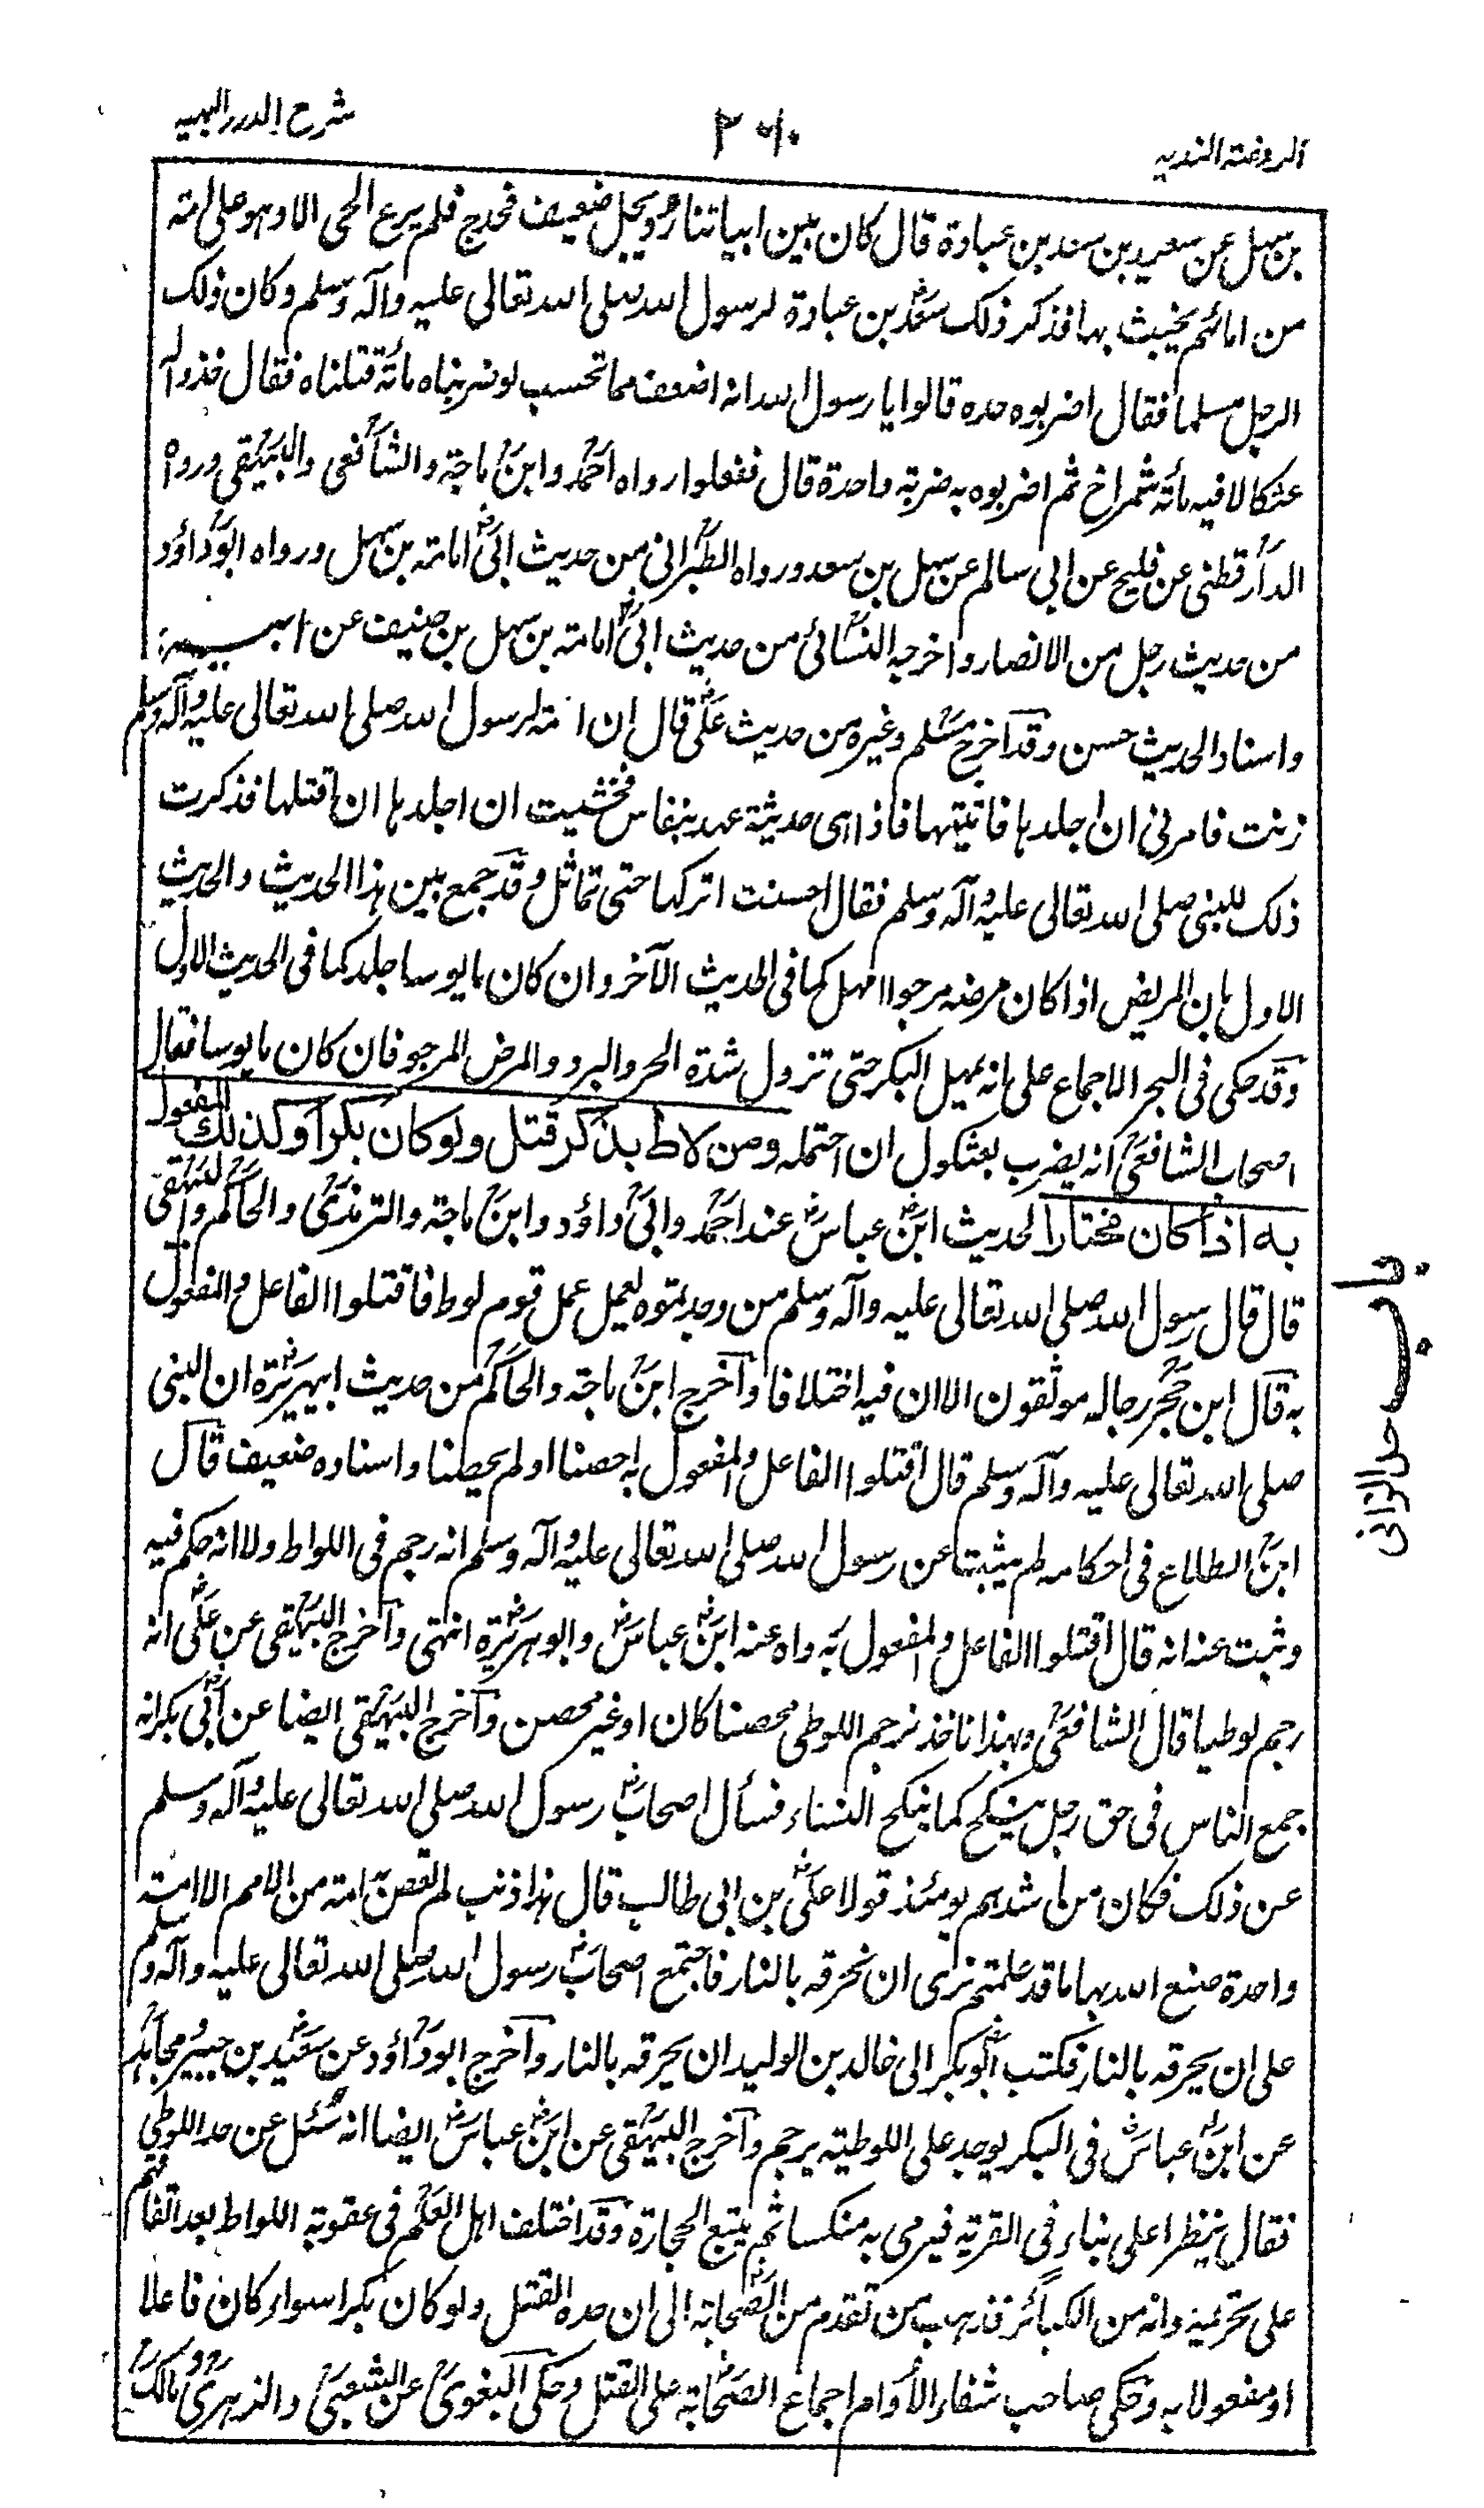 الروضة الندية
٣٦٠
شرح الدرر البهية
بن سهل عن سعيد بن سعد بن عبادة قال كان بين ابياتنا رويجل ضعيف مخدج فلم يرع الحي الا وهو على امة
من امائهم يخبث بها فذكر ذلك سعد بن عبادة لرسول الله صلى الله تعالى عليه وآله وسلم وكان ذلك
الرجل مسلما فقال اضربوه حده قالوا يا رسول الله انه اضعف مما تحسب لو ضربناه مائة قتلناه فقال خذوا له
عثكالا فيه مائة شمراخ ثم اضربوه به ضربة واحدة قال ففعلوا رواه احمد وابن ماجة والشافعي والبيهقي ورواه
الدارقطني عن فليح عن ابي سالم عن سهل بن سعد ورواه الطبراني من حديث ابي امامة بن سهل ورواه ابو داؤد
من حديث رجل من الانصار واخرجه النسائي من حديث ابي امامة بن سهل بن حنيف عن ابيه
واسناد الحديث حسن وقد اخرج مسلم وغيره من حديث علي قال ان امة لرسول الله صلى الله تعالى عليه وآله وسلم
زنت فامرني ان اجلدها فاتيتها فاذا هي حديثة عهد بنفاس فخشيت ان اجلدها ان اقتلها فذكرت
ذلك للنبي صلى الله تعالى عليه وآله وسلم فقال احسنت اتركها حتى تماثل وقد جمع بين هذا الحديث والحديث
الاول بان المريض اذا كان مرضه مرجوا امهل كما في الحديث الآخر وان كان مايوسا جلد كما في الحديث الاول
وقد حكى في البحر الاجماع على انه يمهل البكر حتى تزول شدة الحر والبرد والمرض المرجو فان كان مايوسا فقال
اصحاب الشافعي انه يضرب بعثكول ان احتمله ومن لاط بذكر قتل ولو كان بكرا وكذلك المفعول
به اذا كان مختارا لحديث ابن عباس عند احمد وابي داؤد وابن ماجة والترمذي والحاكم والبيهقي
قال قال رسول الله صلى الله تعالى عليه وآله وسلم من وجدتموه يعمل عمل قوم لوط فاقتلوا الفاعل والمفعول
به قال ابن حجر رجاله موثقون الا ان فيه اختلافا واخرج ابن ماجة والحاكم من حديث ابي هريرة ان النبي
صلى الله تعالى عليه وآله وسلم قال اقتلوا الفاعل والمفعول به احصنا او لم يحصنا واسناده ضعيف قال
ابن الطلاع في احكامه لم يثبت عن رسول الله صلى الله تعالى عليه وآله وسلم انه رجم في اللواط ولا انه حكم فيه
وثبت عنه انه قال اقتلوا الفاعل والمفعول به رواه عنه ابن عباس وابو هريرة انتهى واخرج البيهقي عن علي انه
رجم لوطيا قال الشافعي وبهذا ناخذ نرجم اللوطي محصنا كان او غير محصن واخرج البيهقي ايضا عن ابي بكر انه
جمع الناس في حق رجل ينكح كما ينكح النساء فسأل اصحاب رسول الله صلى الله تعالى عليه وآله وسلم
عن ذلك فكان من اشدهم يومئذ قولا علي بن ابي طالب قال هذا ذنب لم تعص به امة من الامم الا امة
واحدة صنع الله بها ما قد علمتم نرى ان نحرقه بالنار فاجتمع اصحاب رسول الله صلى الله تعالى عليه وآله وسلم
على ان يحرقه بالنار فكتب ابو بكر الى خالد بن الوليد ان يحرقه بالنار واخرج ابو داؤد عن سعيد بن جبير ومجاهد
عن ابن عباس في البكر يوجد على اللوطية يرجم واخرج البيهقي عن ابن عباس ايضا انه سئل عن حد اللوطي
فقال ينظر اعلى بناء في القرية فيرمى به منكسا ثم يتبع الحجارة وقد اختلف اهل العلم في عقوبة اللواط بعد اتفاقهم
على تحريمه وانه من الكبائر فذهب من تقدم من الصحابة الى ان حده القتل ولو كان بكرا سواء كان فاعلا
او مفعولا به وحكى صاحب شفاء الأوام اجماع الصحابة على القتل وحكى البغوي عن الشعبي والزهري ومالك
باب حد الزاني